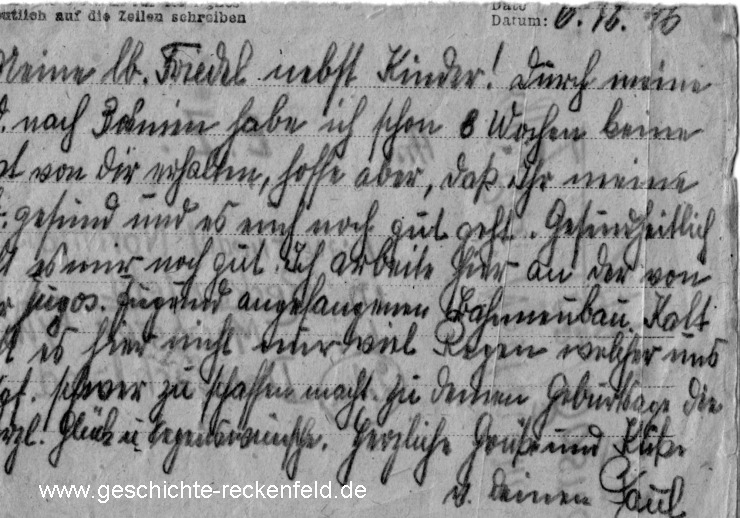 deutlich auf die Zeilen schreiben
Datum: 6.12.46
Meine lb. Friedel nebst Kinder! Durch meine
nach Bosnien habe ich schon 8 Wochen keine
von Dir erhalten, hoffe aber, daß ihr meine
gesund und es euch noch gut geht. Gesundheitlich
es mir noch gut. Ich arbeite hier an der von
jugos. Jugend angefangenen Bahnneubau. Kalt
es hier nicht nur viel Regen welcher uns
schwer zu schaffen macht. Zu deinem Geburtstage die
herzl. Glück u. Segenswünsche. Herzliche Grüße und Küße
v. deinen Paul
www.geschichte-reckenfeld.de